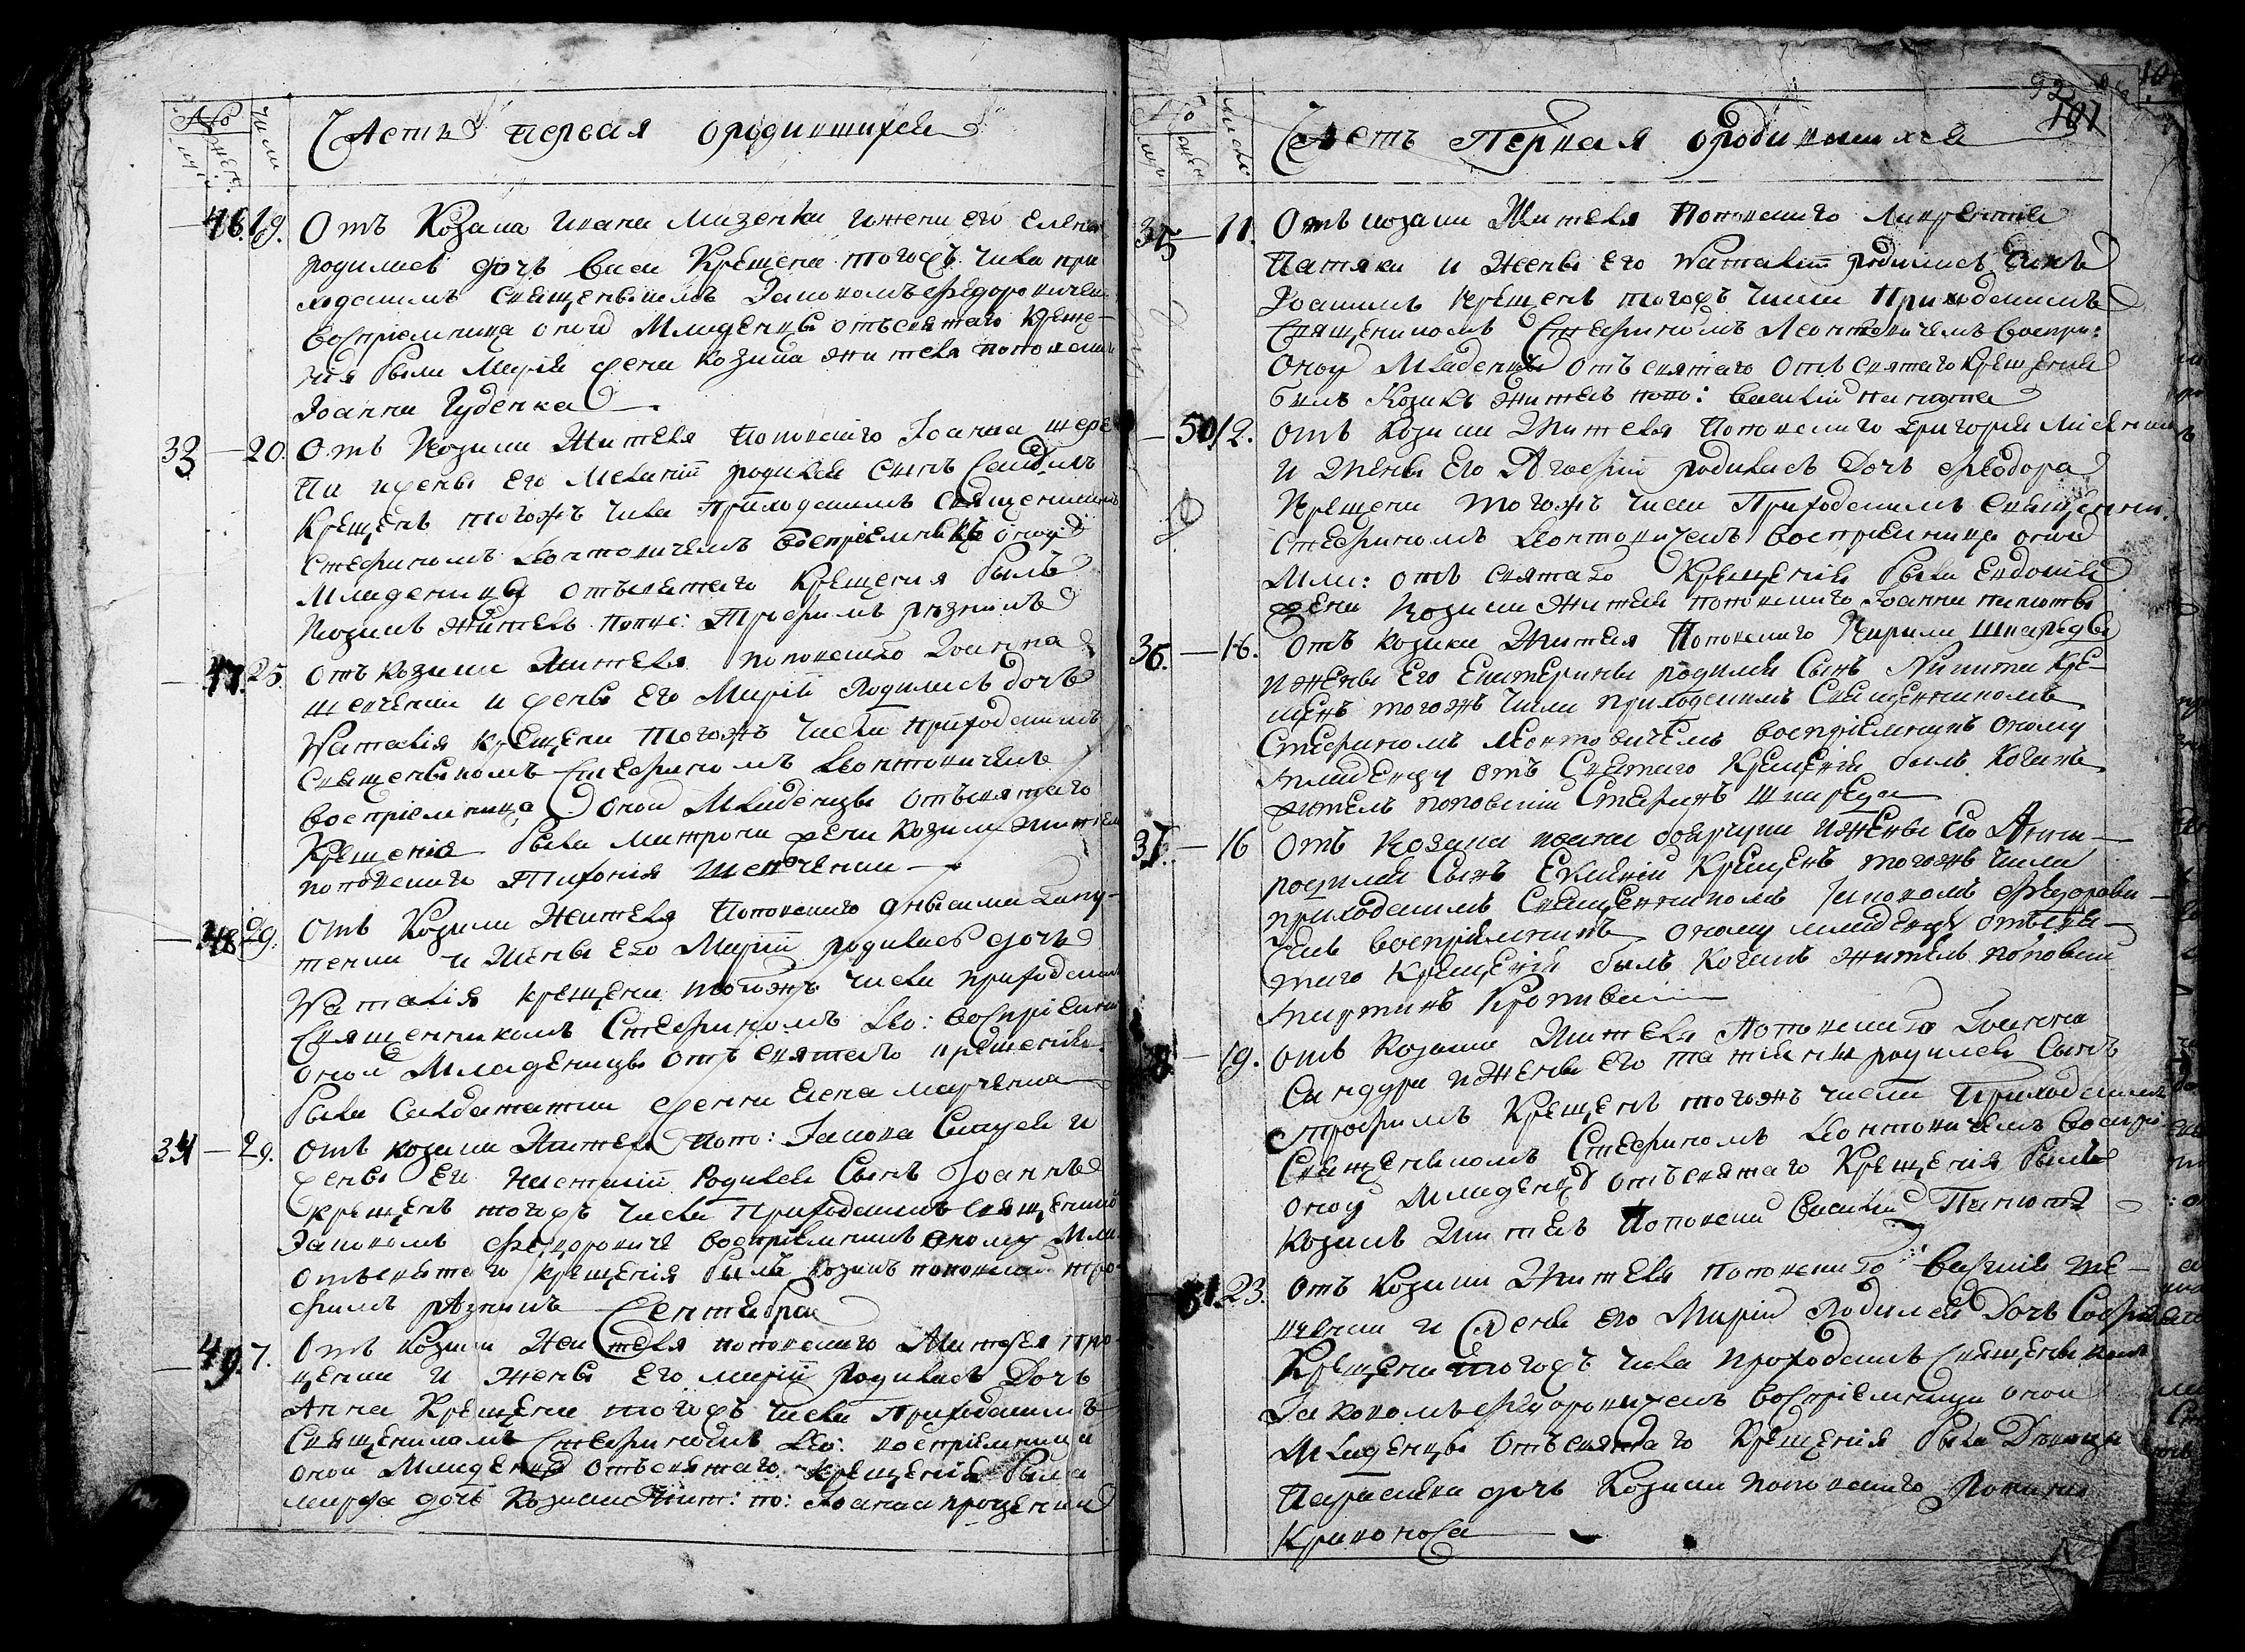 № числ
муж. жен.
Часть первая ородившихся
46. 19. Отъ Козака Ивана Мизенка ижени его Елени
родилась дочь Васса Крещена тогожъ числа при
ходскимъ священикомъ Іаковомъ Федоровичемъ
Воспріемница оной Младенцы отъсвятаго Креще-
нія была Марія жена козака жителя поповскаго
Іоанна Гуденка
33 — 20. Отъ Козака Жителя Поповскаго Іоанна
ижены его Меланіи родился сынъ
Крещенъ тогожъ числа Приходскимъ Священикомъ
Стефаномъ Леонтовичемъ воспріемникъ оному
Младенцу отъсвятаго Крещенія былъ
Козакъ житель попов: Трофимъ Рѣзникъ
47. 25. Отъ козака Жителя поповскаго Іоанна
шевченка и жены Его Маріи Родилась дочь
Наталія крещена тогожъ числа приходскимъ
Священыкомъ Стефаномъ Леонтовичемъ
воспріемница оной Младеницы отъсвятаго
Крещенія была Матрона жена Козака жителя
поповскаго Тихонія Шевченка
48 29. Отъ Козака Жителя Поповскаго
тенка и Жены Его Маріи родилась дочь
Наталія крещена тогожъ числа приходскимъ
Священникомъ Стефаномъ Лео: Воспріемница
оной Младеницы отъ святаго крещенія
была Салдататка Елена марченка
34 — 29. Отъ козака Жителя попо: Іакова и
жены Его Настасіи Родился Сынъ Іоаннъ
крещенъ тогожъ числа Приходскимъ священико
Іаковомъ Федоровиче воспріемникъ оному Мла
отъсвятаго крещенія былъ козакъ поповскій тро-
фимъ рѣзникъ Сентебра
49. 7. Отъ Козака Жителя поповскаго Матфея про-
ценка и жены Его маріи Родилась Дочь
Анна Крещена тогожъ числа Приходскимъ
Священикомъ Стефаномъ Лео: воспріемница
оной Младенцы отъсвятаго крещенія была
марфа дочь Козака жит: по: Іоанна проценка
92
101
№ число
муж жен
Часть Первая ородившихся
35 — 11. Отъ козака Жителя Поповскаго Лаврентія
Патяки и Жены Его Наталіи родился Синъ
Іоакимъ крещенъ тогожъ числа Приходскимъ
Священикомъ Стефаномъ Леонтовичемъ воспри:
оному Младенцы отъ святаго отъ святаго Крещенія
билъ Козакъ житель попо: Василій
50 12. Отъ Козака Жителя Поповскаго Григорія
и Жены Его Агафіи родилась Дочь Феодора
Крещена тогожъ числа Приходскимъ священни.
Стефаномъ Леонтовичемъ воспріемница оной
Мла: отъ святаго Крещенія была Евдокія
жена Козака жителя поповскаго Іоанна
36. — 16. Отъ козака Жителя Поповскаго Кирила Шкарѣды
ижены Его Екатерины родился Сынъ Никита Кре-
щенъ тогожъ числа приходскимъ Священникомъ
Стефаномъ Леонтовичемъ воспріемникъ оному
младенцу отъ Святаго Крещенія былъ Козакъ
житель поповскій Стефанъ Шкареда
37. — 16 Отъ Козака ижены Его Анны
родился Сынъ Крещенъ тогожъ числа
приходскимъ Священникомъ Іаковомъ Федорови-
чемъ воспріемникъ оному младенцу отъсвя-
таго Крещенія былъ Козакъ житель поповскій
Мартинъ Кропива
38 — 19. Отъ Козака Жителя Поповскаго Іоанна
Сандура ижены Его татіаны родился Сынъ
трофимъ Крещенъ тогожъ числа Приходскимъ
Священыкомъ Стефаномъ Леонтовичемъ воспри
оному Младенцу отъсвятаго Крещенія былъ
Козакъ Житель Поповскій Василій
51. 23. Отъ Козака Жителя поповскаго Василія Ше-
вченка и жени его Маріи Родилась Дочь Софія
Крещена тогожъ числа проходскимъ священыком
Іаковомъ Федоровичемъ воспріемница оной
Младенцы отъсвятаго Крещенія была Дѣвица
Параскева дочь Козака поповскаго
Кривоноса